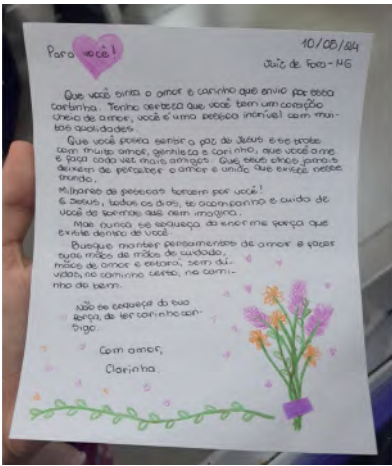 Para você!
10/05/24
Juiz de Fora-MG
Que você sinta o amor e carinho que envio por essa
cartinha. Tenho certeza que você tem um coração
cheio de amor, você é uma pessoa incrível com mui-
tas qualidades.
Que você possa sentir a paz de Jesus e se trate
com muito amor, gentileza e carinho, que você ame
e faça cada vez mais amigos. Que seus olhos jamais
deixem de perceber o amor e união que existe nesse
mundo.
Milhares de pessoas torcem por você!
E Jesus, todos os dias, te acompanha e cuida de
você de formas que nem imagina.
Mas nunca se esqueça da enorme força que
existe dentro de você.
Busque manter pensamentos de amor e fazer
suas mãos de mãos de cuidado,
mãos de amor e estará, sem dú-
vidas, no caminho certo, no cami-
nho do bem.
Não se esqueça da sua
força, de ter carinho con-
sigo.
Com amor,
Clarinha.